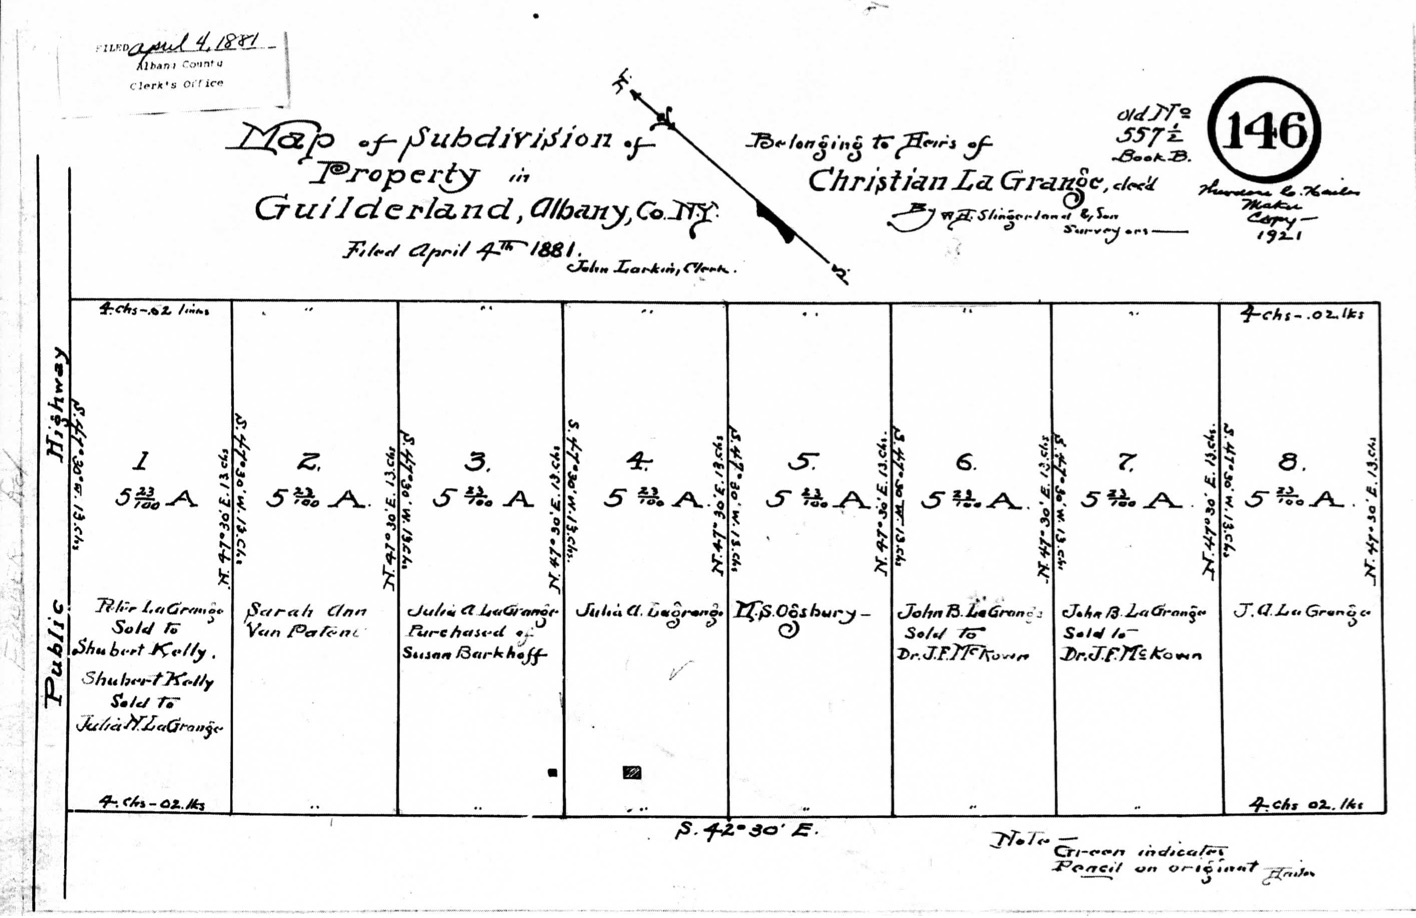 FILED April 4, 1881
Albany County
Clerk's Office
Map of Subdivision of
Property in
Guilderland, Albany, Co. N.Y.
Filed April 4th 1881.
John Larkin, Clerk.
N.
S.
Belonging to Heirs of
Christian La Grange, dec'd
By W H. Slingerland & Son
Surveyors
Old No
557 1/2
Book B.
146
Maker
Copy
1921
Public Highway
4 chs - .02 links
"
"
"
"
"
"
4 chs - .02. lks
S. 47° 30' W. 13. chs
1
5 23/100 A
N. 47° 30' E. 13 chs
Peter LaGrange
Sold to
Shubert Kelly.
Shubert Kelly
Sold to
Julia N. LaGrange
S. 47° 30' W. 13. chs
2.
5 23/100 A.
N. 47° 30' E. 13. chs
Sarah Ann
Van Patent
S. 47° 30' W. 13. chs
3.
5 23/100 A
N. 47° 30' E. 13 chs
Julia A. LaGrange
Purchased of
Susan Barkhoff
S. 47° 30' W. 13. chs.
4.
5 23/100 A.
N. 47° 30' E. 13 chs
Julia A. Lagrange
S. 47° 30' W. 13. chs
5.
5 23/100 A.
N. 47° 30' E. 13 chs.
M. S. Ogsbury
S. 47° 30' W. 13. chs
6.
5 23/100 A.
N. 47° 30' E. 13. chs
John B. LaGrange
Sold to
Dr. J. F. McKown
S. 47° 30' W. 13. chs
7.
5 23/100 A.
N. 47° 30' E. 13 chs.
John B. LaGrange
Sold to
Dr. J. F. McKown
S. 47° 30' W. 13. chs
8.
5 23/100 A.
N. 47° 30' E. 13. chs
J. A. La Grange
4. chs - 02. lks
"
"
"
"
"
"
4. chs 02. lks
S. 42° 30' E.
Note
Green indicates
Pencil on original